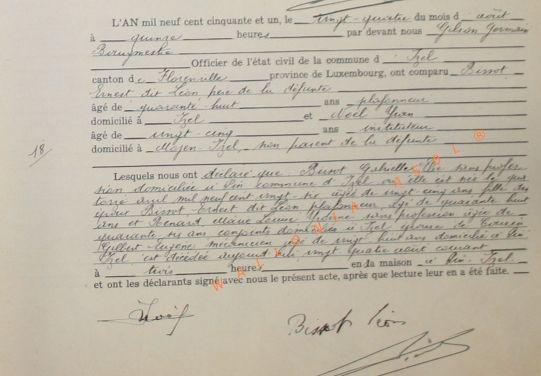 L'AN mil neuf cent cinquante et un, le vingt-quatre du mois d'août
à quinze heures par devant nous Gilson Germain
Officier de l'état civil de la commune d'Izel
canton de Florenville province de Luxembourg, ont comparu Bissot
Ernest dit Léon père de la défunte
âgé de quarante huit ans plafonneur
domicilié à Izel et Noël Jean
âgé de vingt-cinq ans instituteur
domicilié à Moyen-Izel, non parent de la défunte
18
Lesquels nous ont déclaré que Bissot Gabrielle sans profes-
sion domiciliée à Pin commune d'Izel où elle est née le qua-
torze avril mil neuf cent vingt-six âgée de vingt cinq ans fille des
époux Bissot Ernest dit Léon plafonneur âgé de quarante huit
ans et Renard Marie Louise sans profession âgée de
quarante six ans conjoints domiciliés à Izel épouse de
Gilbert Eugène mécanicien âgé de vingt huit ans domicilié à Pin
Izel est décédée aujourd'hui vingt quatre août courant
à trois heures en la maison à Pin Izel.
et ont les déclarants signé avec nous le présent acte, après que lecture leur en a été faite.
WALLONIA MEBL ®
Noël
Bissot Léon